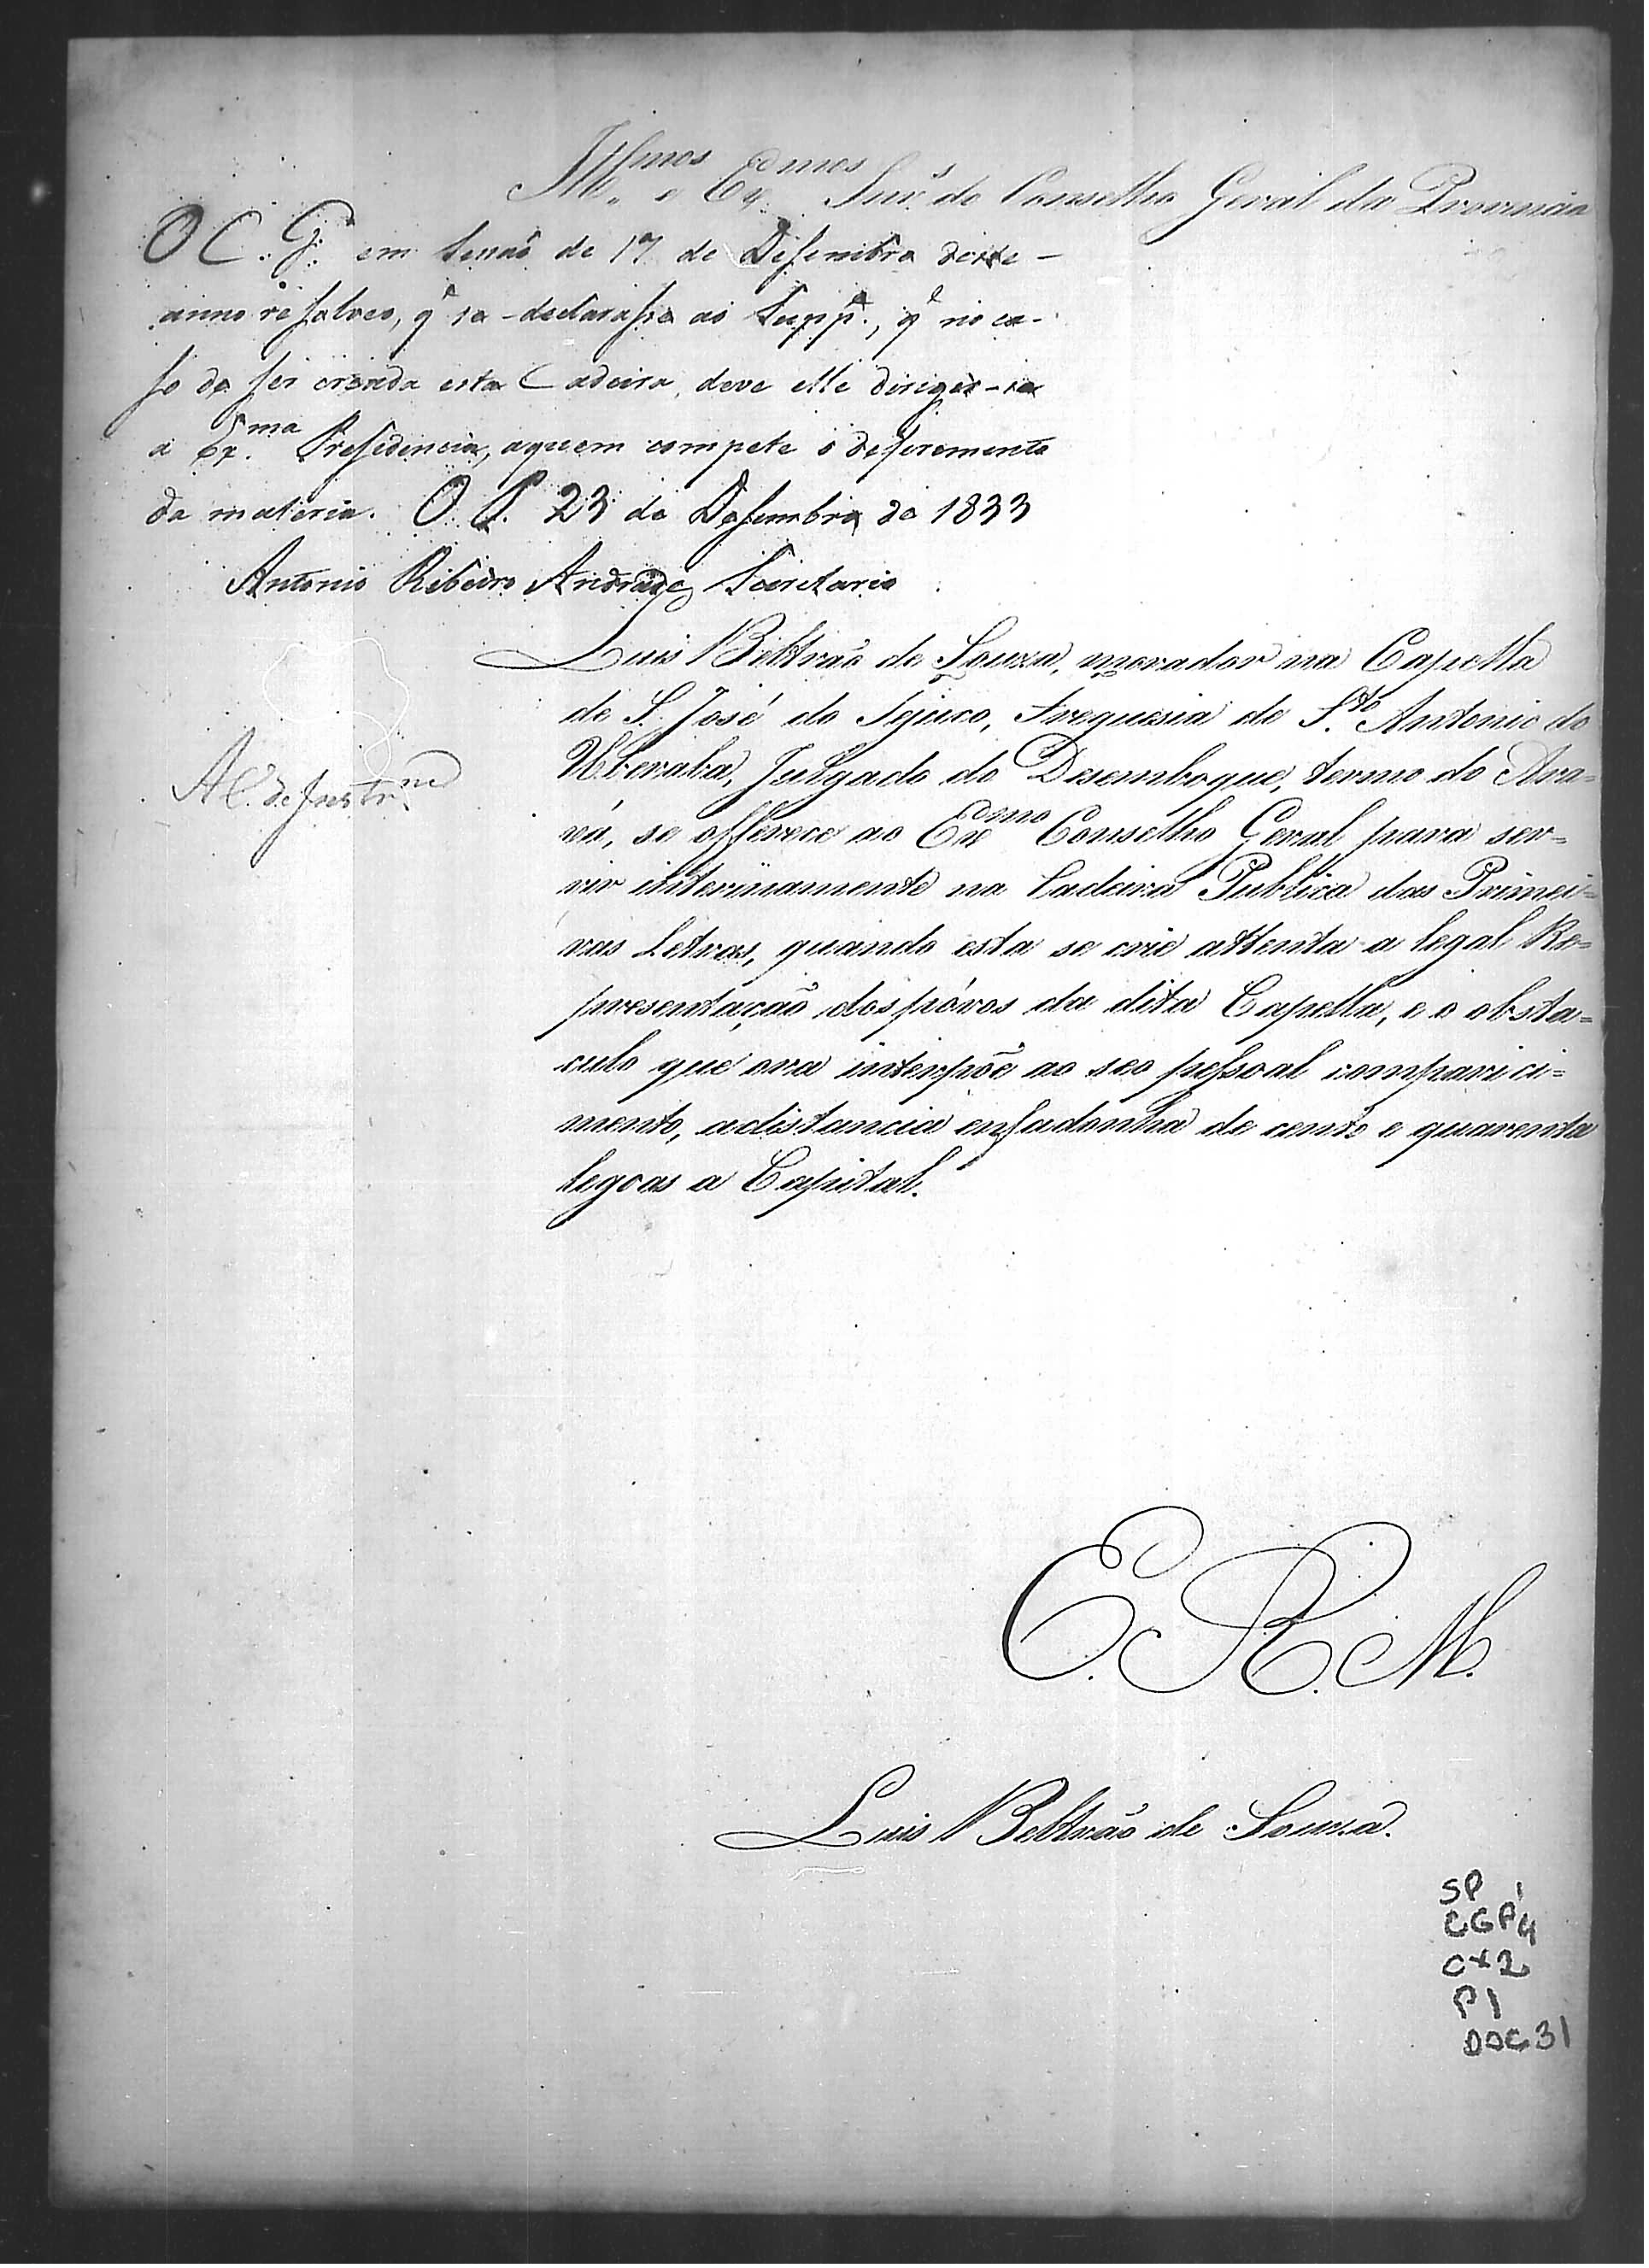 Ill.mos e Ex.mos Snr.s do Conselho Geral da Provincia
O C. G. em Sessaõ de 17 de Desembro deste
anno resolveo, q.e se declarasse ao Supp.e, q.e no ca-
so de ser creada esta Cadeira, deve elle dirigir-se
a Ex.ma Presidencia, aquem compete o deferemento
da materia. O. P. 23 de Desembro de 1833
Antonio Ribeiro Andrade Secretario
Luis Beltraõ de Souza, morador na Capella
de S. José do Tejuco, Freguesia de S.to Antonio do
Uberaba, Julgado do Desemboque, termo do Ara=
xá, se offerece ao Ex.mo Conselho Geral para ser=
vir interinamente na Cadeira Publica das Primei=
ras Letras, quando esta se crie attenta a legal Re=
presentaçaõ dos póvos da dita Capella, e o obsta=
culo que ora interpõe ao seo pessoal compareci=
mento, a distancia enfadonha de cento e quarenta
legoas a Capital.
A C. de Instr.m
E. R. M.
Luis Beltraõ de Souza.
SP
CGP 4
CX2
P1
DOC 31